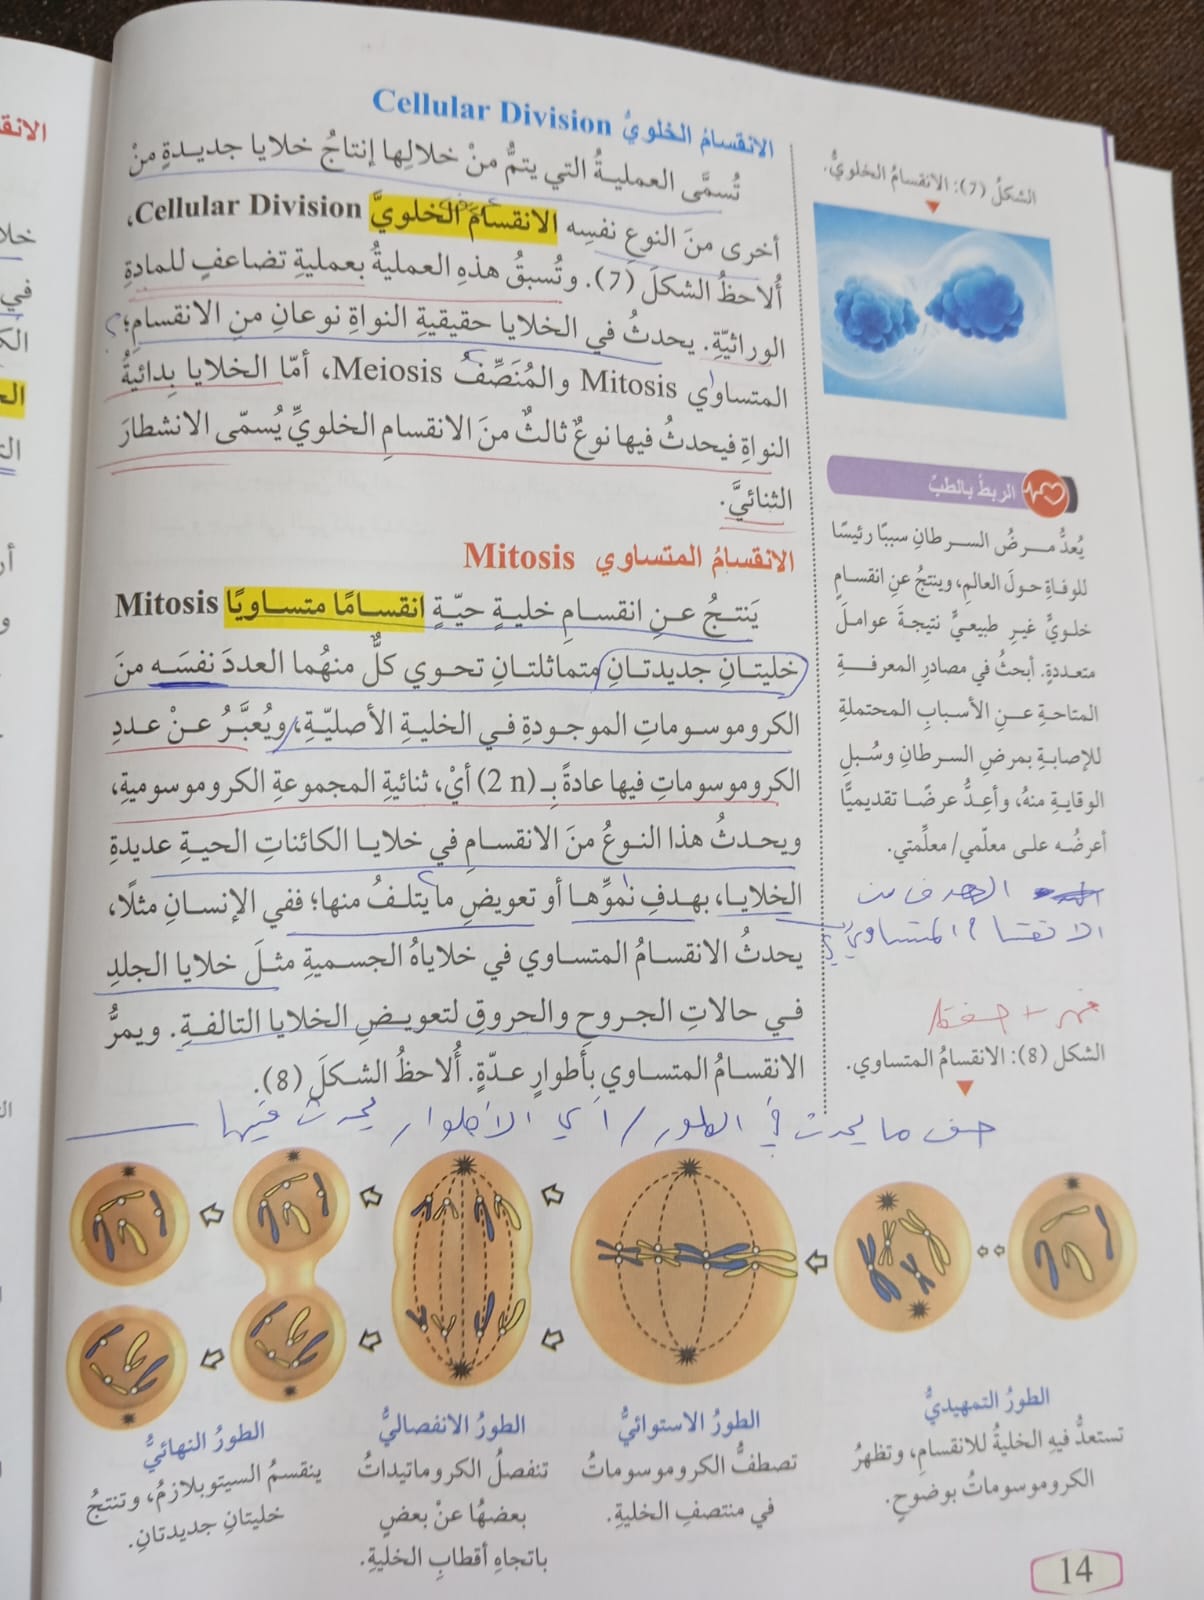 الانقسامُ الخلويُّ Cellular Division
تُسمَّى العمليةُ التي يتمُّ منْ خلالِها إنتاجُ خلايا جديدةٍ منْ
أخرى منَ النوعِ نفسِه الانقسامَ الخلويَّ Cellular Division،
أُلاحظُ الشكلَ (7). وتُسبقُ هذهِ العمليةُ بعمليةِ تضاعفٍ للمادةِ
الوراثيّةِ. يحدثُ في الخلايا حقيقيةِ النواةِ نوعانِ منِ الانقسامِ؛
المتساوي Mitosis والمُنَصِّفُ Meiosis، أمّا الخلايا بِدائيةُ
النواةِ فيحدثُ فيها نوعٌ ثالثٌ منَ الانقسامِ الخلويِّ يُسمّى الانشطارَ
الثنائيَّ.
الانقسامُ المتساوي Mitosis
يَنتجُ عنِ انقسامِ خليةٍ حيّةٍ انقسامًا متساويًا Mitosis
خليتانِ جديدتانِ متماثلتانِ تحوي كلٌّ منهُما العددَ نفسَه منَ
الكروموسوماتِ الموجودةِ في الخليةِ الأصليّةِ، ويُعبَّرُ عنْ عددِ
الكروموسوماتِ فيها عادةً بِـ (2 n) أيْ، ثنائيةِ المجموعةِ الكروموسوميةِ،
ويحدثُ هذا النوعُ منَ الانقسامِ في خلايا الكائناتِ الحيةِ عديدةِ
الخلايا، بهدفِ نموِّها أو تعويضِ ما يتلفُ منها؛ ففي الإنسانِ مثلًا،
يحدثُ الانقسامُ المتساوي في خلاياهُ الجسميةِ مثلَ خلايا الجلدِ
في حالاتِ الجروحِ والحروقِ لتعويضِ الخلايا التالفةِ. ويمرُّ
الانقسامُ المتساوي بأطوارٍ عدّةٍ. أُلاحظُ الشكلَ (8).
الشكلُ (7): الانقسامُ الخلويُّ.
الربطُ بالطبِّ
يُعدُّ مرضُ السرطانِ سببًا رئيسًا
للوفاةِ حولَ العالمِ، وينتجُ عنِ انقسامٍ
خلويٍّ غيرِ طبيعيٍّ نتيجةَ عواملَ
متعددةٍ. أبحثُ في مصادرِ المعرفةِ
المتاحةِ عنِ الأسبابِ المحتملةِ
للإصابةِ بمرضِ السرطانِ وسُبلِ
الوقايةِ منهُ، وأعِدُّ عرضًا تقديميًّا
أعرضُه على معلّمي/ معلِّمتي.
الهدف من
الانقسام المتساوي؟
الشكل (8): الانقسامُ المتساوي.
ما يحدث في الطور / أي الأطوار يحدث فيها
الطورُ التمهيديُّ
تستعدُّ فيهِ الخليةُ للانقسامِ، وتظهرُ
الكروموسوماتُ بوضوحٍ.
الطورُ الاستوائيُّ
تصطفُّ الكروموسوماتُ
في منتصفِ الخليةِ.
الطورُ الانفصاليُّ
تنفصلُ الكروماتيداتُ
بعضهُا عنْ بعضٍ
باتجاهِ أقطابِ الخليةِ.
الطورُ النهائيُّ
ينقسمُ السيتوبلازمُ، وتنتجُ
خليتانِ جديدتانِ.
14